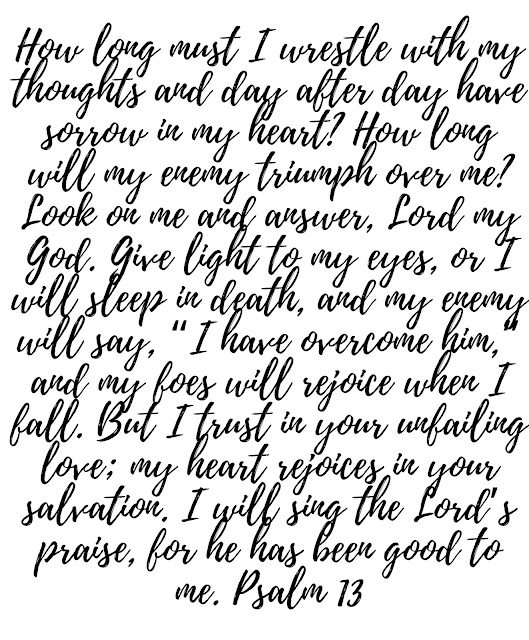 How long must I wrestle with my
thoughts and day after day have
sorrow in my heart? How long
will my enemy triumph over me?
Look on me and answer, Lord my
God. Give light to my eyes, or I
will sleep in death, and my enemy
will say, " I have overcome him,"
and my foes will rejoice when I
fall. But I trust in your unfailing
love; my heart rejoices in your
salvation. I will sing the Lord's
praise, for he has been good to
me. Psalm 13